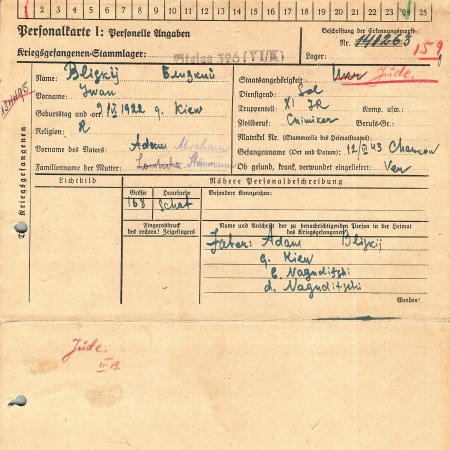 2 3 4 5 6 7 8 9 10 11 12 13 14 15 16 17 18 19 20 21 22 23 24 25
Personalkarte I: Personelle Angaben
Kriegsgefangenen-Stammlager: Stalag 326 (VI/K)
Beschriftung der Erkennungsmarke
Nr. 141263 159
Lager:
Name: Blizkij Близкий
Vorname: Iwan
Geburtstag und -ort: 9 IV 1922 g. Kiew
Religion: R
Vorname des Vaters: Adam Abraham
Familienname der Mutter: Steinmann
Staatsangehörigkeit: Jude.
Dienstgrad: Sol
Truppenteil: XI JR Komp. usw.:
Zivilberuf: Chimiker Berufs-Gr.:
Matrikel Nr. (Stammrolle des Heimatstaates):
Gefangennahme (Ort und Datum): 12/III 43 Charkow
Ob gesund, krank, verwundet eingeliefert: Ver
Des Kriegsgefangenen
Lichtbild
Nähere Personalbeschreibung
Größe Haarfarbe Besondere Kennzeichen:
168 Schat
Fingerabdruck
des rechten! Zeigefingers
Name und Anschrift der zu benachrichtigenden Person in der Heimat
des Kriegsgefangenen
Fater: Adam Blizkij
g. Kiew
Wenden!
Jude.